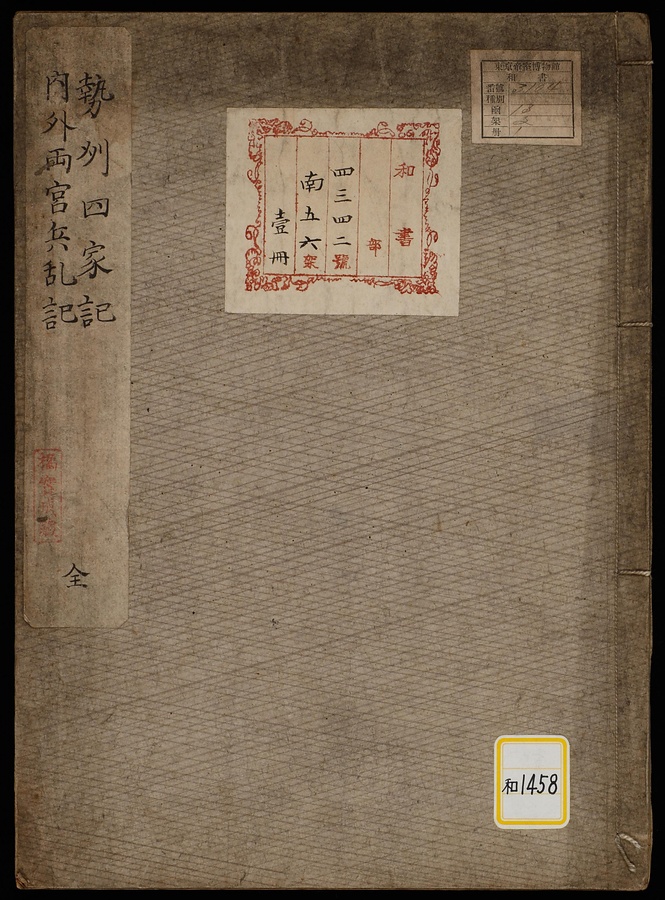 勢州四家記
内外両宮兵乱記
全
和書
部
四三四二號
南五六架
壹冊
東京帝室博物館
和書
番號
種別
函
架
册
和1458